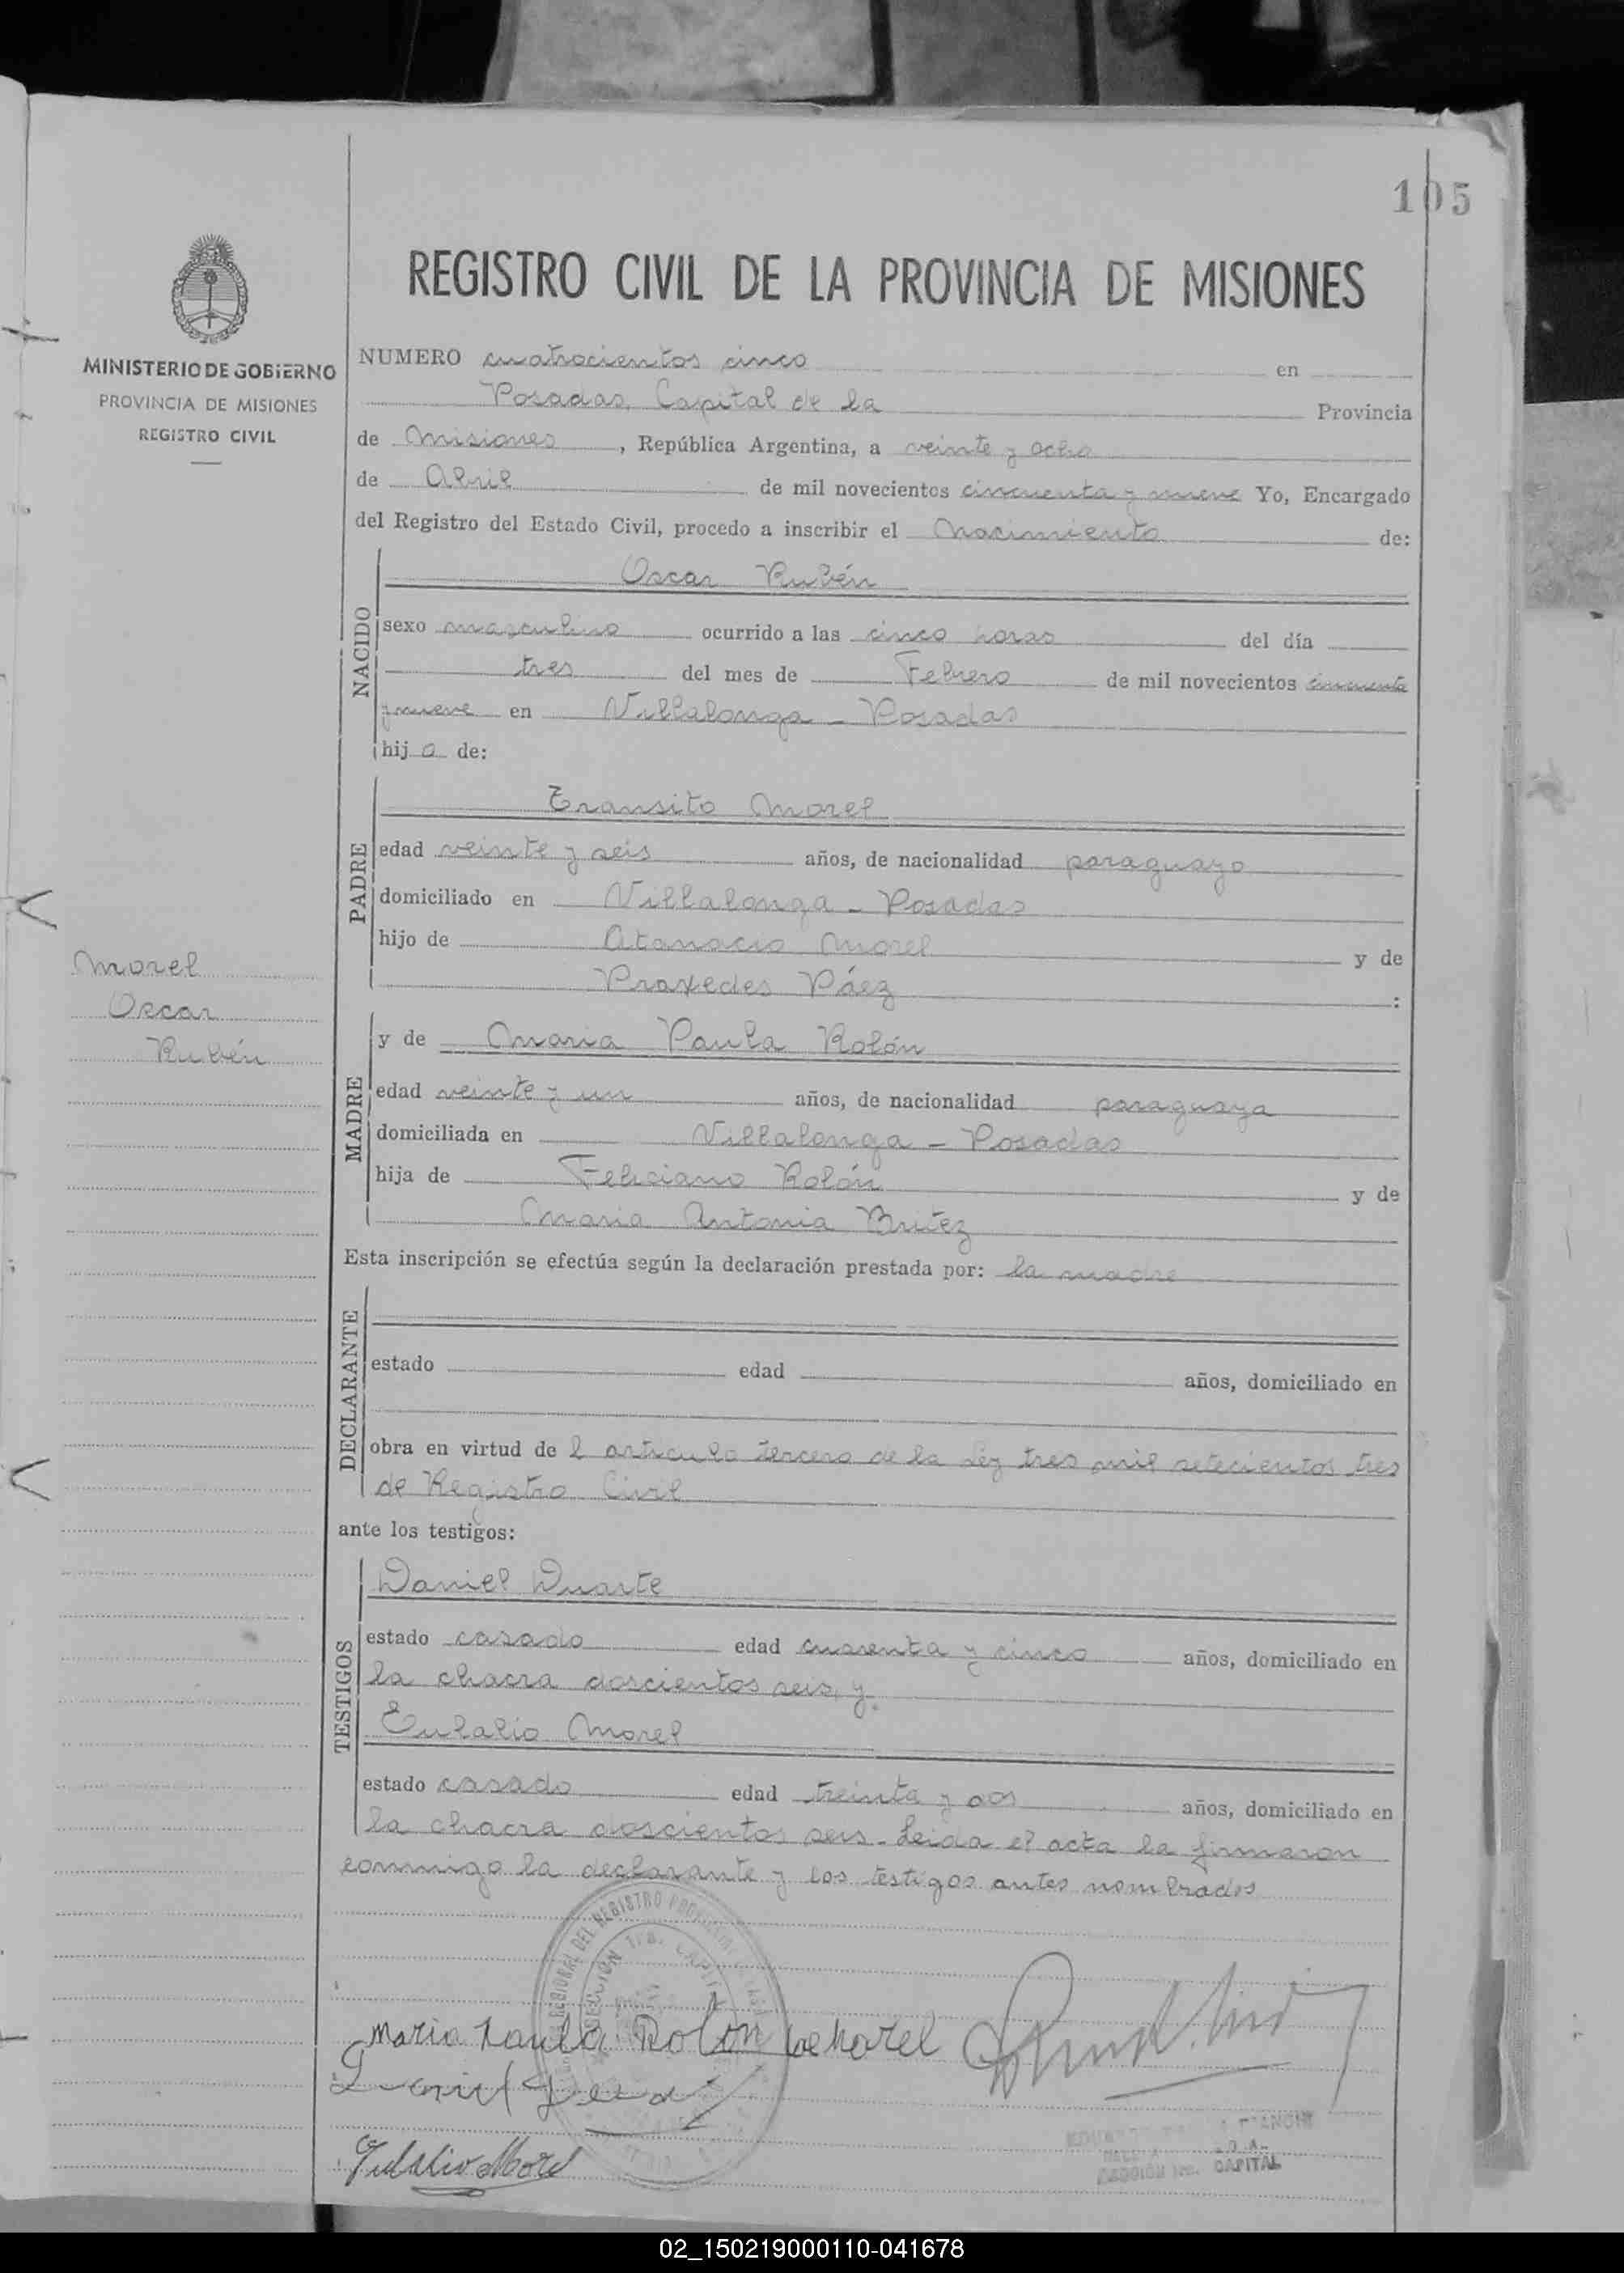 105
REGISTRO CIVIL DE LA PROVINCIA DE MISIONES
MINISTERIO DE GOBIERNO
PROVINCIA DE MISIONES
REGISTRO CIVIL
NUMERO cuatrocientos cinco en
Posadas, Capital de la Provincia
de Misiones, República Argentina, a veinte y ocho
de Abril de mil novecientos cincuenta y nueve Yo, Encargado
del Registro del Estado Civil, procedo a inscribir el Nacimiento de:
NACIDO
Oscar Rubén
sexo masculino ocurrido a las cinco horas del día
tres del mes de Febrero de mil novecientos cincuenta
y nueve en Villalonga - Posadas
hijo de:
PADRE
Transito Morel
edad veinte y seis años, de nacionalidad paraguayo
domiciliado en Villalonga - Posadas
hijo de Atanacio Morel y de
Praxedes Páez :
Morel
Oscar
Rubén
MADRE
y de Maria Paula Rolón
edad veinte y un años, de nacionalidad paraguaya
domiciliada en Villalonga - Posadas
hija de Feliciano Rolón y de
Maria Antonia Britez
Esta inscripción se efectúa según la declaración prestada por: la madre
DECLARANTE
estado edad años, domiciliado en
obra en virtud de l articulo tercero de la Ley tres mil setecientos tres
de Registro Civil
ante los testigos:
TESTIGOS
Daniel Duarte
estado casado edad cuarenta y cinco años, domiciliado en
la chacra doscientos seis, y.
Eulalio Morel
estado casado edad treinta y dos años, domiciliado en
la chacra doscientos seis - Leida el acta la firmaron
conmigo la declarante y los testigos antes nombrados
REGIONAL DEL REGISTRO
Maria Paula Rolon de Morel
Eulalio Morel
CAPITAL
02_150219000110-041678